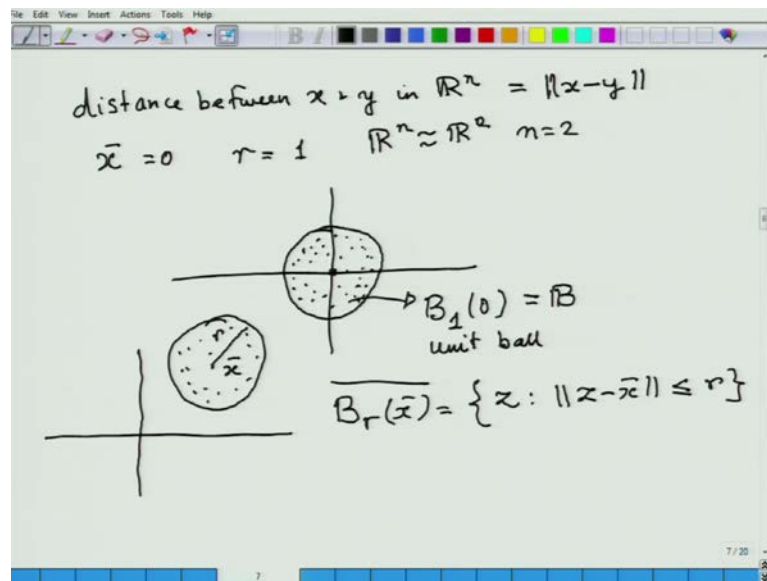 File Edit View Insert Actions Tools Help
B I
distance between x & y in ℝⁿ = ||x-y||
x̄ = 0 r = 1 ℝⁿ ≈ ℝ² n=2
B₁(0) = 𝔹
unit ball
r
x̄
B̅ᵣ(x̄) = { z : ||z-x̄|| ≤ r }
7/20
7